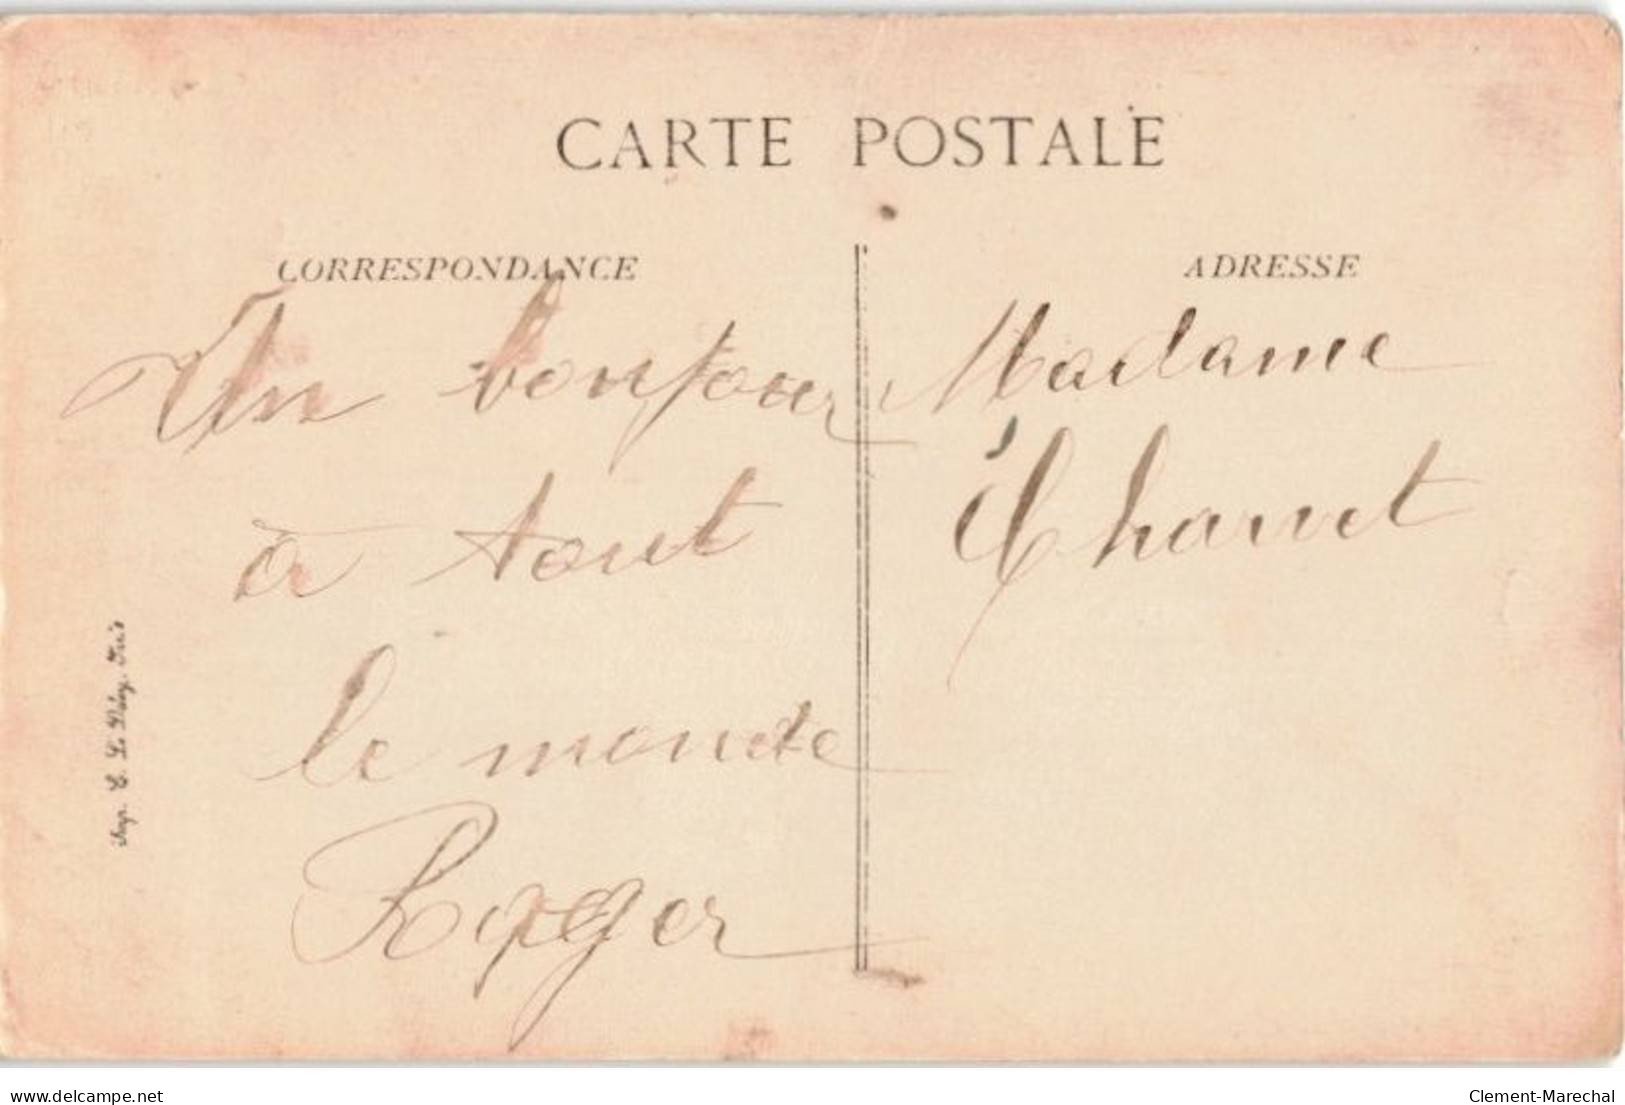 CARTE POSTALE
CORRESPONDANCE
Un bonjour
à tout
le monde
Roger
ADRESSE
Madame
Chauvet
delcampe.net
Clement-Marechal